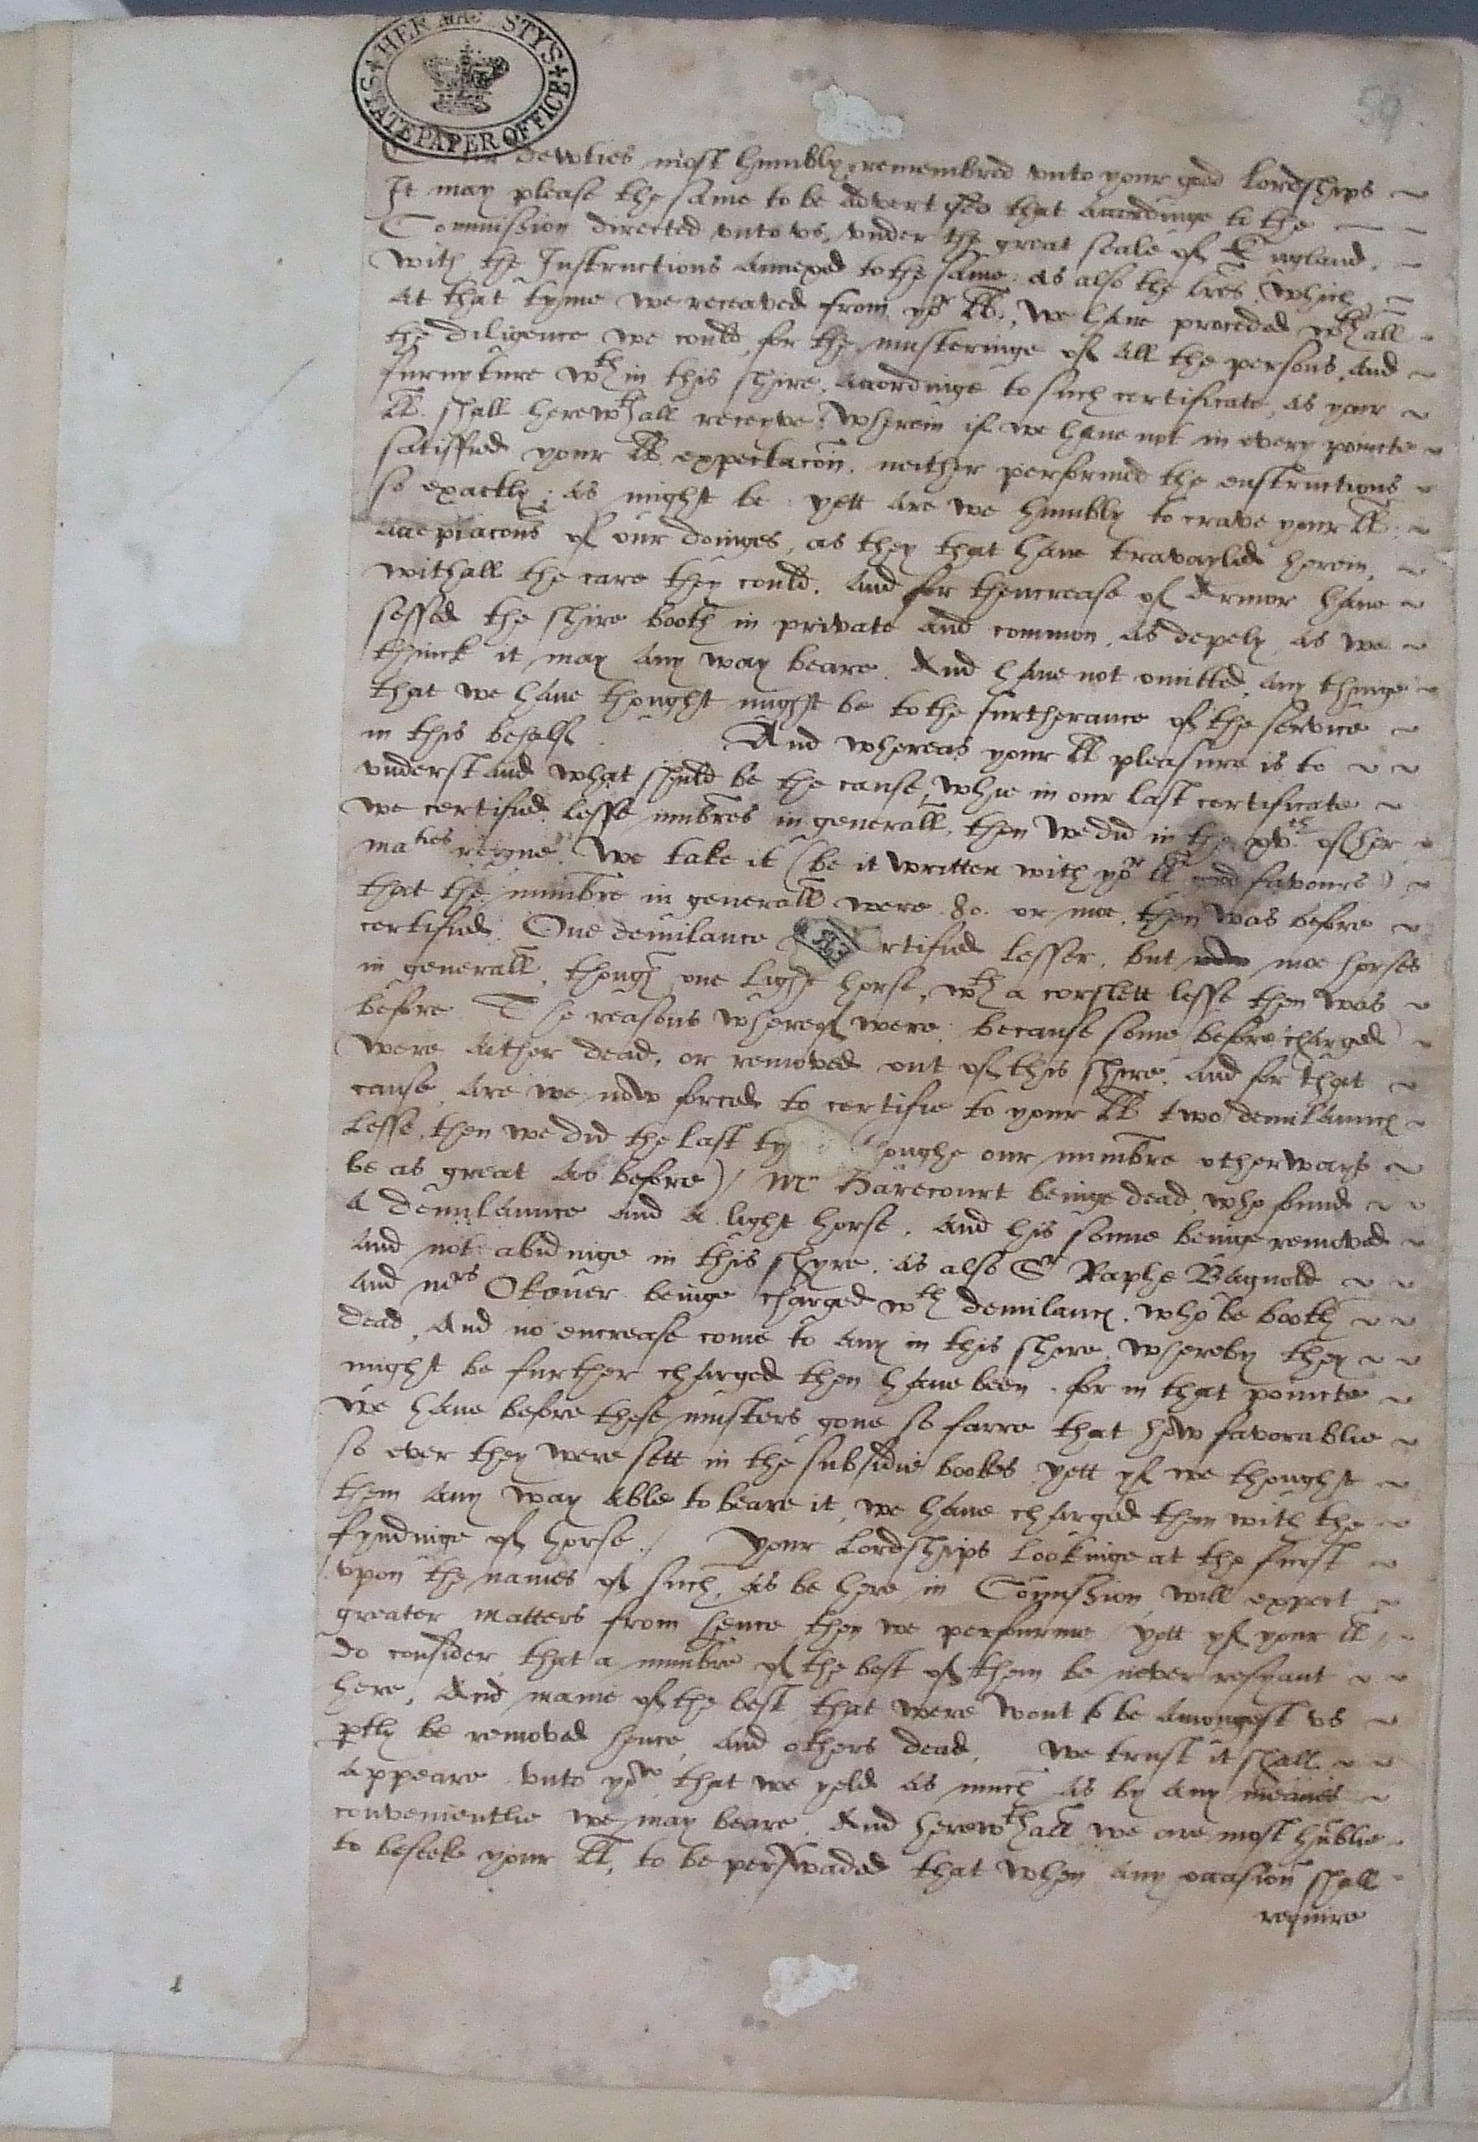 HER MAJESTYS
STATE PAPER OFFICE
59
dewties most humbly remembred vnto your good Lordships
It may please the same to be advertised that accordinge to the
Commission directed vnto vs, vnder the great seale of England,
with the Instructions annexed to the same: as also the lres which
at that tyme we receaved from yor LL., we have proceded wth all
the diligence we could, for the musteringe of all the persons, and
furnyture wthin this shire, accordinge to such certificate, as your
LL. shall herewthall receyve: Wherein if we have not in every poincte
satisfied your LL. expectacon, neither performed the enstructions
so exactly; as might be yett are we humbly to crave your LL.
acceptacons of our doinges, as they that have travayled herein,
withall the care they could. And for thencrease of Armor have
sessed the shire booth in private and common, as depely, as we
thinck it may any way beare. And have not omitted any thinge
that we have thought might be to the furtherance of the service
in this behalf. And whereas your LL pleasure is to
vnderstand what shuld be the cause, whie in our last certificate
we certified lesse numbres in generall, then we did in the xvth of her
maties reigne. We take it (be it written with yor LL good favours)
that the numbre in generall were 80 or moe, then was before
certified. One demilance rtified lesser, but moe horses
in generall, though one light horse, wth a corslett lesse then was
before. The reasons whereof were, because some (before charged)
were either dead, or removed out of this shire. And for that
cause, are we now forced to certifie to your LL two demilaunc
lesse, then we did the last ty oughe our numbre otherways
be as great as before) / Mr Harecourt beinge dead, who found
a demilaunce and a light horse, and his sonne beinge removed
and not abidinge in this shyre, as also Sr Raphe Bagnold
and mrs Okouer beinge charged wth demilanc. who be booth
dead, And no encrease come to any in this shire, whereby they
might be further charged then have been. for in that poincte
we have before these musters gone so farre that how favorablie
so ever they were sett in the subsidie bookes yett yf we thought
them any way able to beare it, we have charged them with the
fyndinge of horse. / Your Lordships lookinge at the furst
vpon the names of such, as be here in Comission, will expect
greater matters from hence, then we perfourme / yett yf your LL
do consider, that a numbre of the best of them be never resyant
here, And manie of the best that were wont to be amongest vs
ptly be removed hence, and others dead, We trust it shall
appeare vnto yow, that we yeld as much as by any meanes
convenientlie we may beare. And herewthall we are most hublie
to beseeke your LL, to be perswaded that when any occasion shall
require